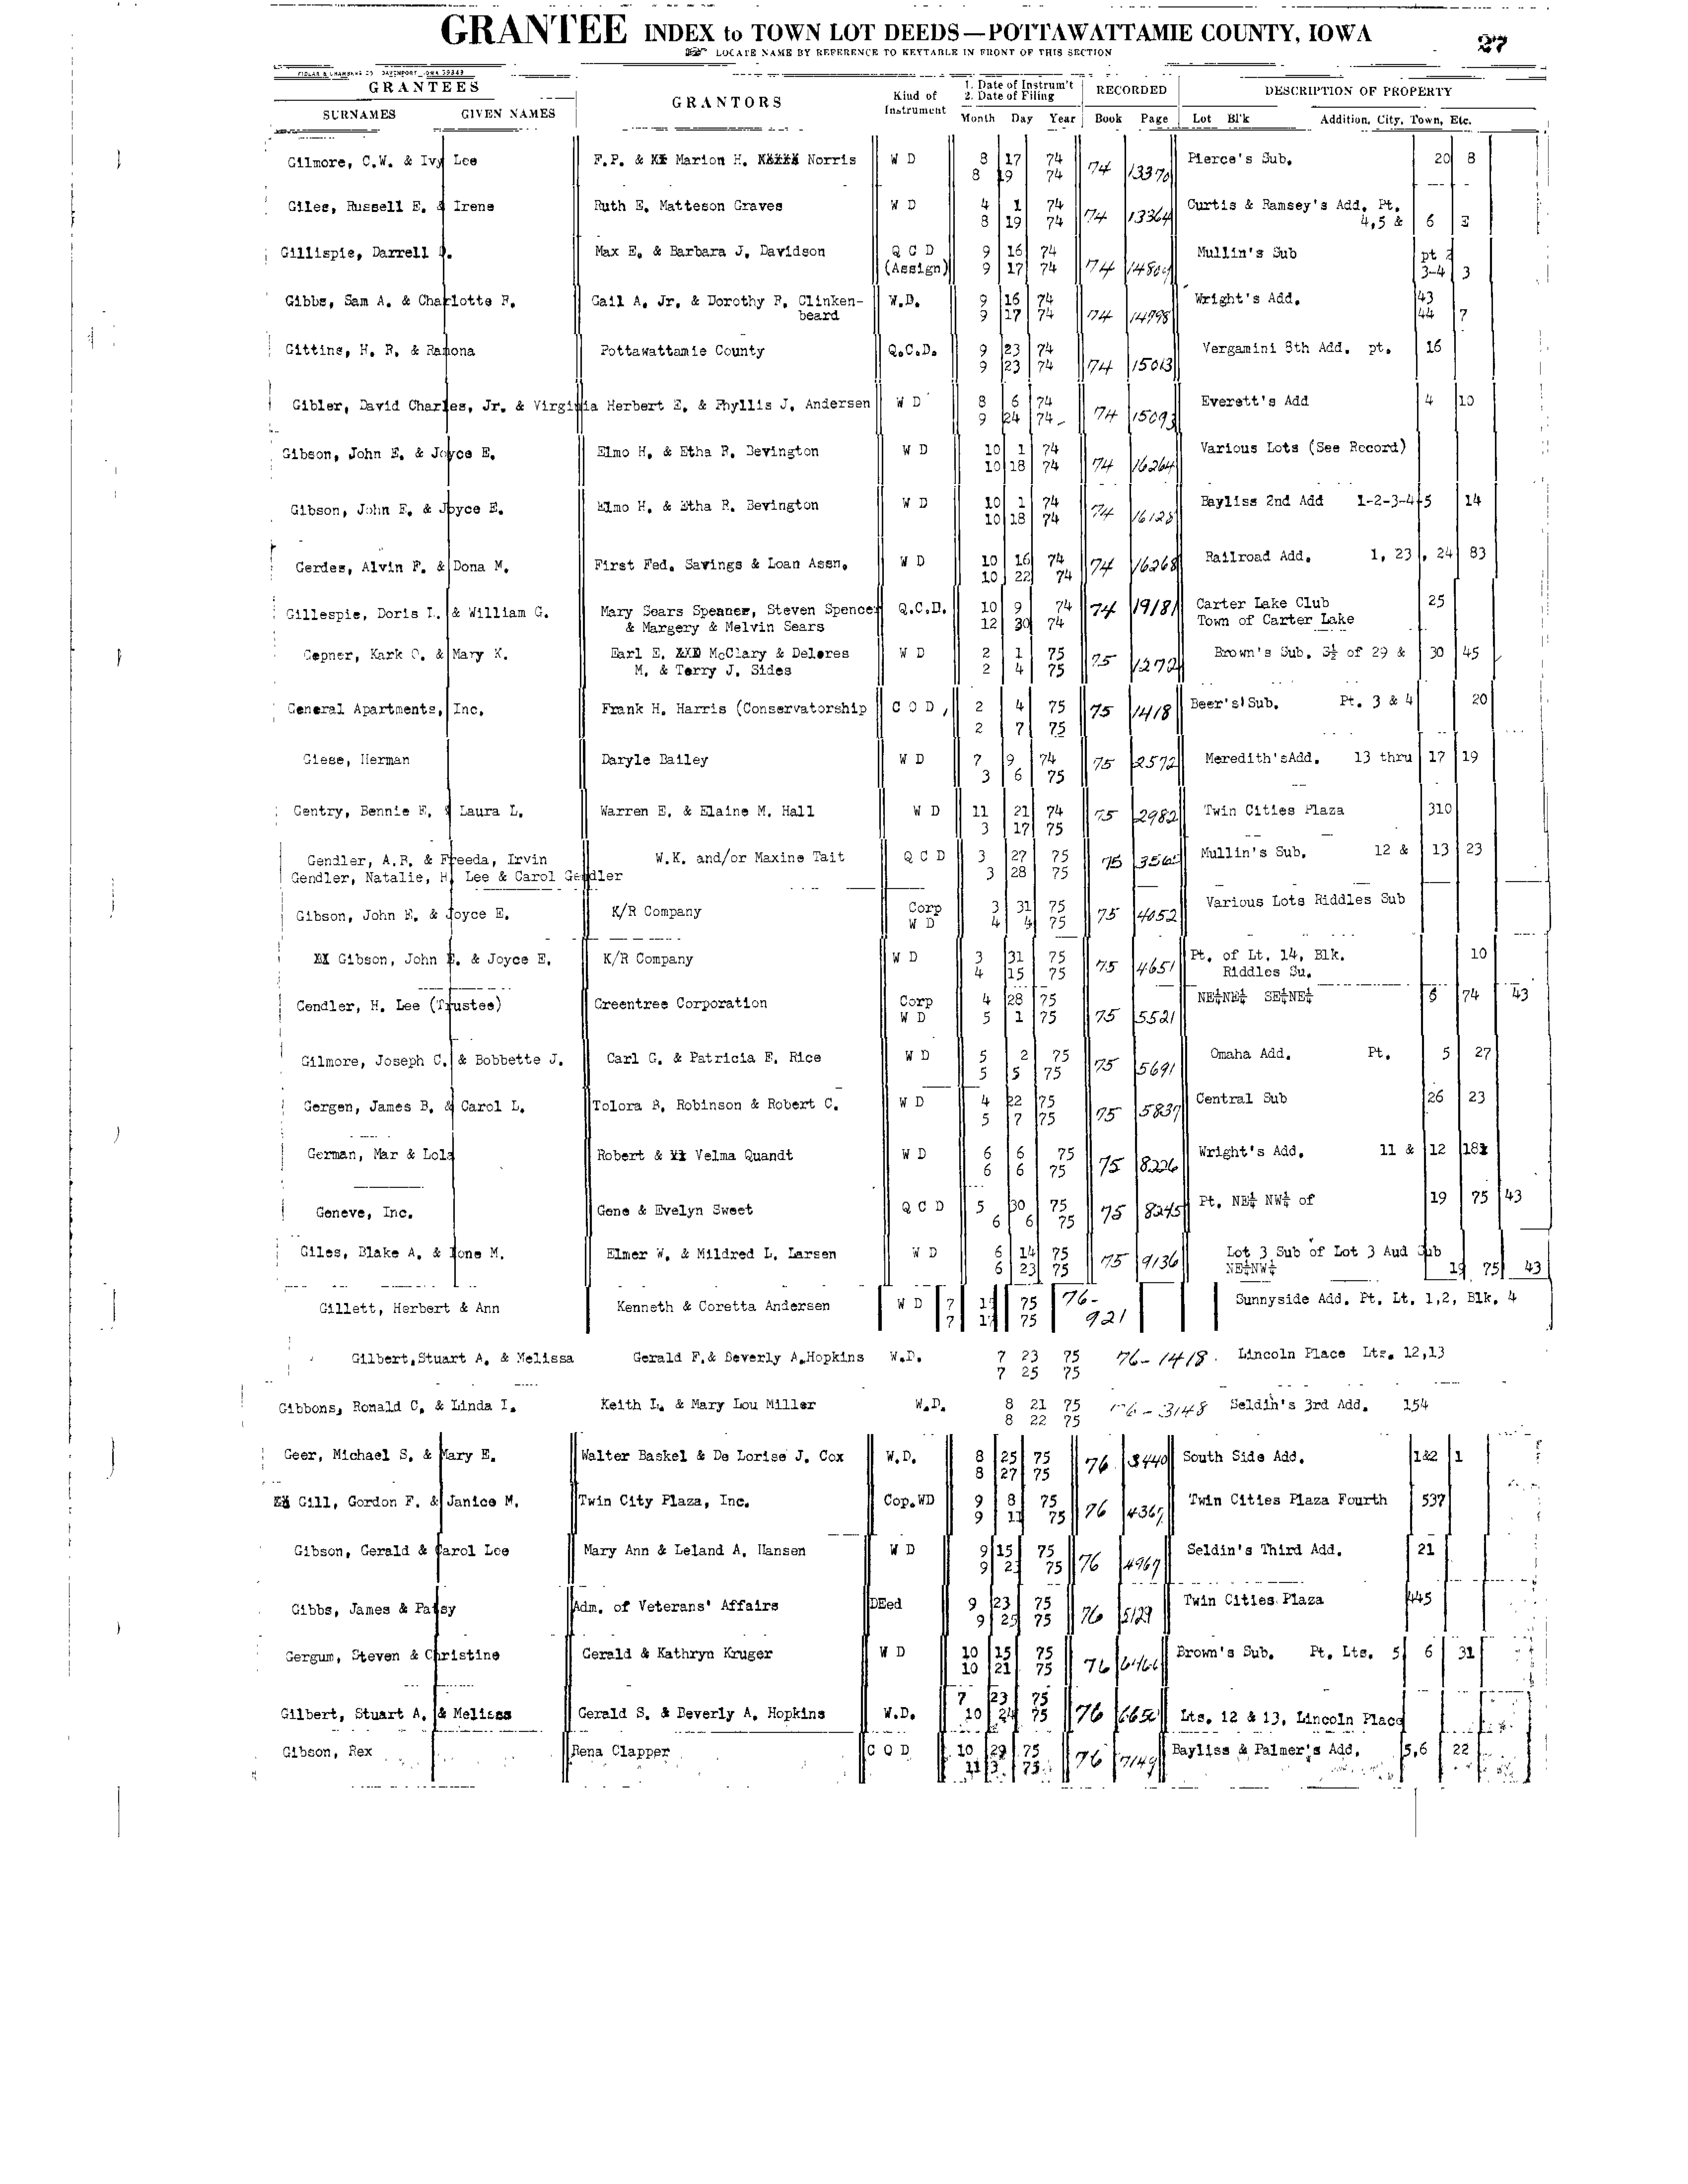 GRANTEE INDEX to TOWN LOT DEEDS—POTTAWATTAMIE COUNTY, IOWA 27
LOCATE NAME BY REFERENCE TO KEYTABLE IN FRONT OF THIS SECTION
GRANTEES GRANTORS Kind of Instrument 1. Date of Instrum't 2. Date of Filing RECORDED DESCRIPTION OF PROPERTY
SURNAMES GIVEN NAMES Month Day Year Book Page Lot Bl'k Addition, City, Town, Etc.
Gilmore, C.W. & Ivy Lee F.P. & Marion H. Norris W D 8 17 74 74 13370 Pierce's Sub. 20 8
8 19 74
Giles, Russell E. & Irene Ruth E. Matteson Graves W D 4 1 74 74 13364 Curtis & Ramsey's Add. Pt.
8 19 74 4,5 & 6 3
Gillispie, Darrell D. Max E. & Barbara J. Davidson Q C D 9 16 74 Mullin's Sub pt 2
(Assign) 9 17 74 74 3-4 3
Gibbs, Sam A. & Charlotte F. Gail A. Jr. & Dorothy F. Clinken- W.D. 9 16 74 Wright's Add. 43
beard 9 17 74 74 14998 44 7
Gittins, H. R. & Ramona Pottawattamie County Q.C.D. 9 23 74 Vergamini 8th Add. pt. 16
9 23 74 74 15013
Gibler, David Charles, Jr. & Virginia Herbert E. & Phyllis J. Andersen W D 8 6 74 Everett's Add 4 10
9 24 74 74 15093
Gibson, John E. & Joyce E. Elmo H. & Etha R. Bevington W D 10 1 74 Various Lots (See Record)
10 18 74 74 16264
Gibson, John E. & Joyce E. Elmo H. & Etha R. Bevington W D 10 1 74 Bayliss 2nd Add 1-2-3-4-5 14
10 18 74 74 16128
Gerdes, Alvin F. & Dona M. First Fed. Savings & Loan Assn. W D 10 16 74 Railroad Add. 1, 23, 24 83
10 22 74 74 16268
Gillespie, Doris I. & William G. Mary Sears Spenner, Steven Spencer Q.C.D. 10 9 74 74 19181 Carter Lake Club 25
& Margery & Melvin Sears 12 30 74 Town of Carter Lake
Gepner, Kark O. & Mary K. Earl E. McClary & Delores W D 2 1 75 Brown's Sub. S½ of 29 & 30 45
M. & Terry J. Sides 2 4 75 75 1272
General Apartments, Inc. Frank H. Harris (Conservatorship C O D, 2 4 75 75 1418 Beer's Sub. Pt. 3 & 4 20
2 7 75
Giese, Herman Daryle Bailey W D 7 9 74 75 2572 Meredith'sAdd. 13 thru 17 19
3 6 75
Gentry, Bennie F. & Laura L. Warren E. & Elaine M. Hall W D 11 21 74 75 2982 Twin Cities Plaza 310
3 17 75
Gendler, A.R. & Freeda, Irvin W.K. and/or Maxine Tait Q C D 3 27 75 75 Mullin's Sub. 12 & 13 23
Gendler, Natalie, H. Lee & Carol Gendler 3 28 75
Gibson, John E. & Joyce E. K/R Company Corp 3 31 75 75 4052 Various Lots Riddles Sub
W D 4 4 75
Gibson, John E. & Joyce E. K/R Company W D 3 31 75 75 4651 Pt. of Lt. 14, Blk. 10
4 15 75 Riddles Su.
Gendler, H. Lee (Trustee) Greentree Corporation Corp 4 28 75 NE¼NE¼ SE¼NE¼ 6 74 43
W D 5 1 75 75 5521
Gilmore, Joseph C. & Bobbette J. Carl G. & Patricia F. Rice W D 5 2 75 75 5691 Omaha Add. Pt. 5 27
5 5 75
Gergen, James B. & Carol L. Tolora B. Robinson & Robert C. W D 4 22 75 75 5837 Central Sub 26 23
5 7 75
German, Mar & Lola Robert & Velma Quandt W D 6 6 75 75 8226 Wright's Add. 11 & 12 18
6 6 75
Geneve, Inc. Gene & Evelyn Sweet Q C D 5 30 75 75 8245 Pt. NE¼ NW¼ of 19 75 43
6 6 75
Giles, Blake A. & Ione M. Elmer W. & Mildred L. Larsen W D 6 14 75 75 9136 Lot 3 Sub of Lot 3 Aud Sub
6 23 75 NE¼NW¼ 19 75 43
Gillett, Herbert & Ann Kenneth & Coretta Andersen W D 7 75 76- Sunnyside Add. Pt. Lt. 1,2, Blk. 4
7 75 921
Gilbert,Stuart A. & Melissa Gerald F.& Beverly A.Hopkins W.D. 7 23 75 76-1418. Lincoln Place Lts. 12,13
7 25 75
Gibbons, Ronald C. & Linda I. Keith L. & Mary Lou Miller W.D. 8 21 75 76-3148 Seldin's 3rd Add. 154
8 22 75
Geer, Michael S. & Mary E. Walter Baskel & De Lorise J. Cox W.D. 8 25 75 76 3440 South Side Add. 1&2 1
8 27 75
Gill, Gordon F. & Janice M. Twin City Plaza, Inc. Cop.WD 9 8 75 76 Twin Cities Plaza Fourth 537
9 11 75
Gibson, Gerald & Carol Lee Mary Ann & Leland A. Hansen W D 9 15 75 76 4969 Seldin's Third Add. 21
9 75
Gibbs, James & Patsy Adm. of Veterans' Affairs DEed 9 23 75 76 5129 Twin Cities Plaza 445
9 25 75
Gergum, Steven & Christine Gerald & Kathryn Kruger W D 10 15 75 76 6466 Brown's Sub. Pt. Lts. 5 6 31
10 21 75
Gilbert, Stuart A. & Melissa Gerald S. & Beverly A. Hopkins W.D. 7 23 75 76 6650 Lts. 12 & 13, Lincoln Place
10 24 75
Gibson, Rex Rena Clapper C O D 10 29 75 76 7149 Bayliss & Palmer's Add. 5,6 22
11 3 75